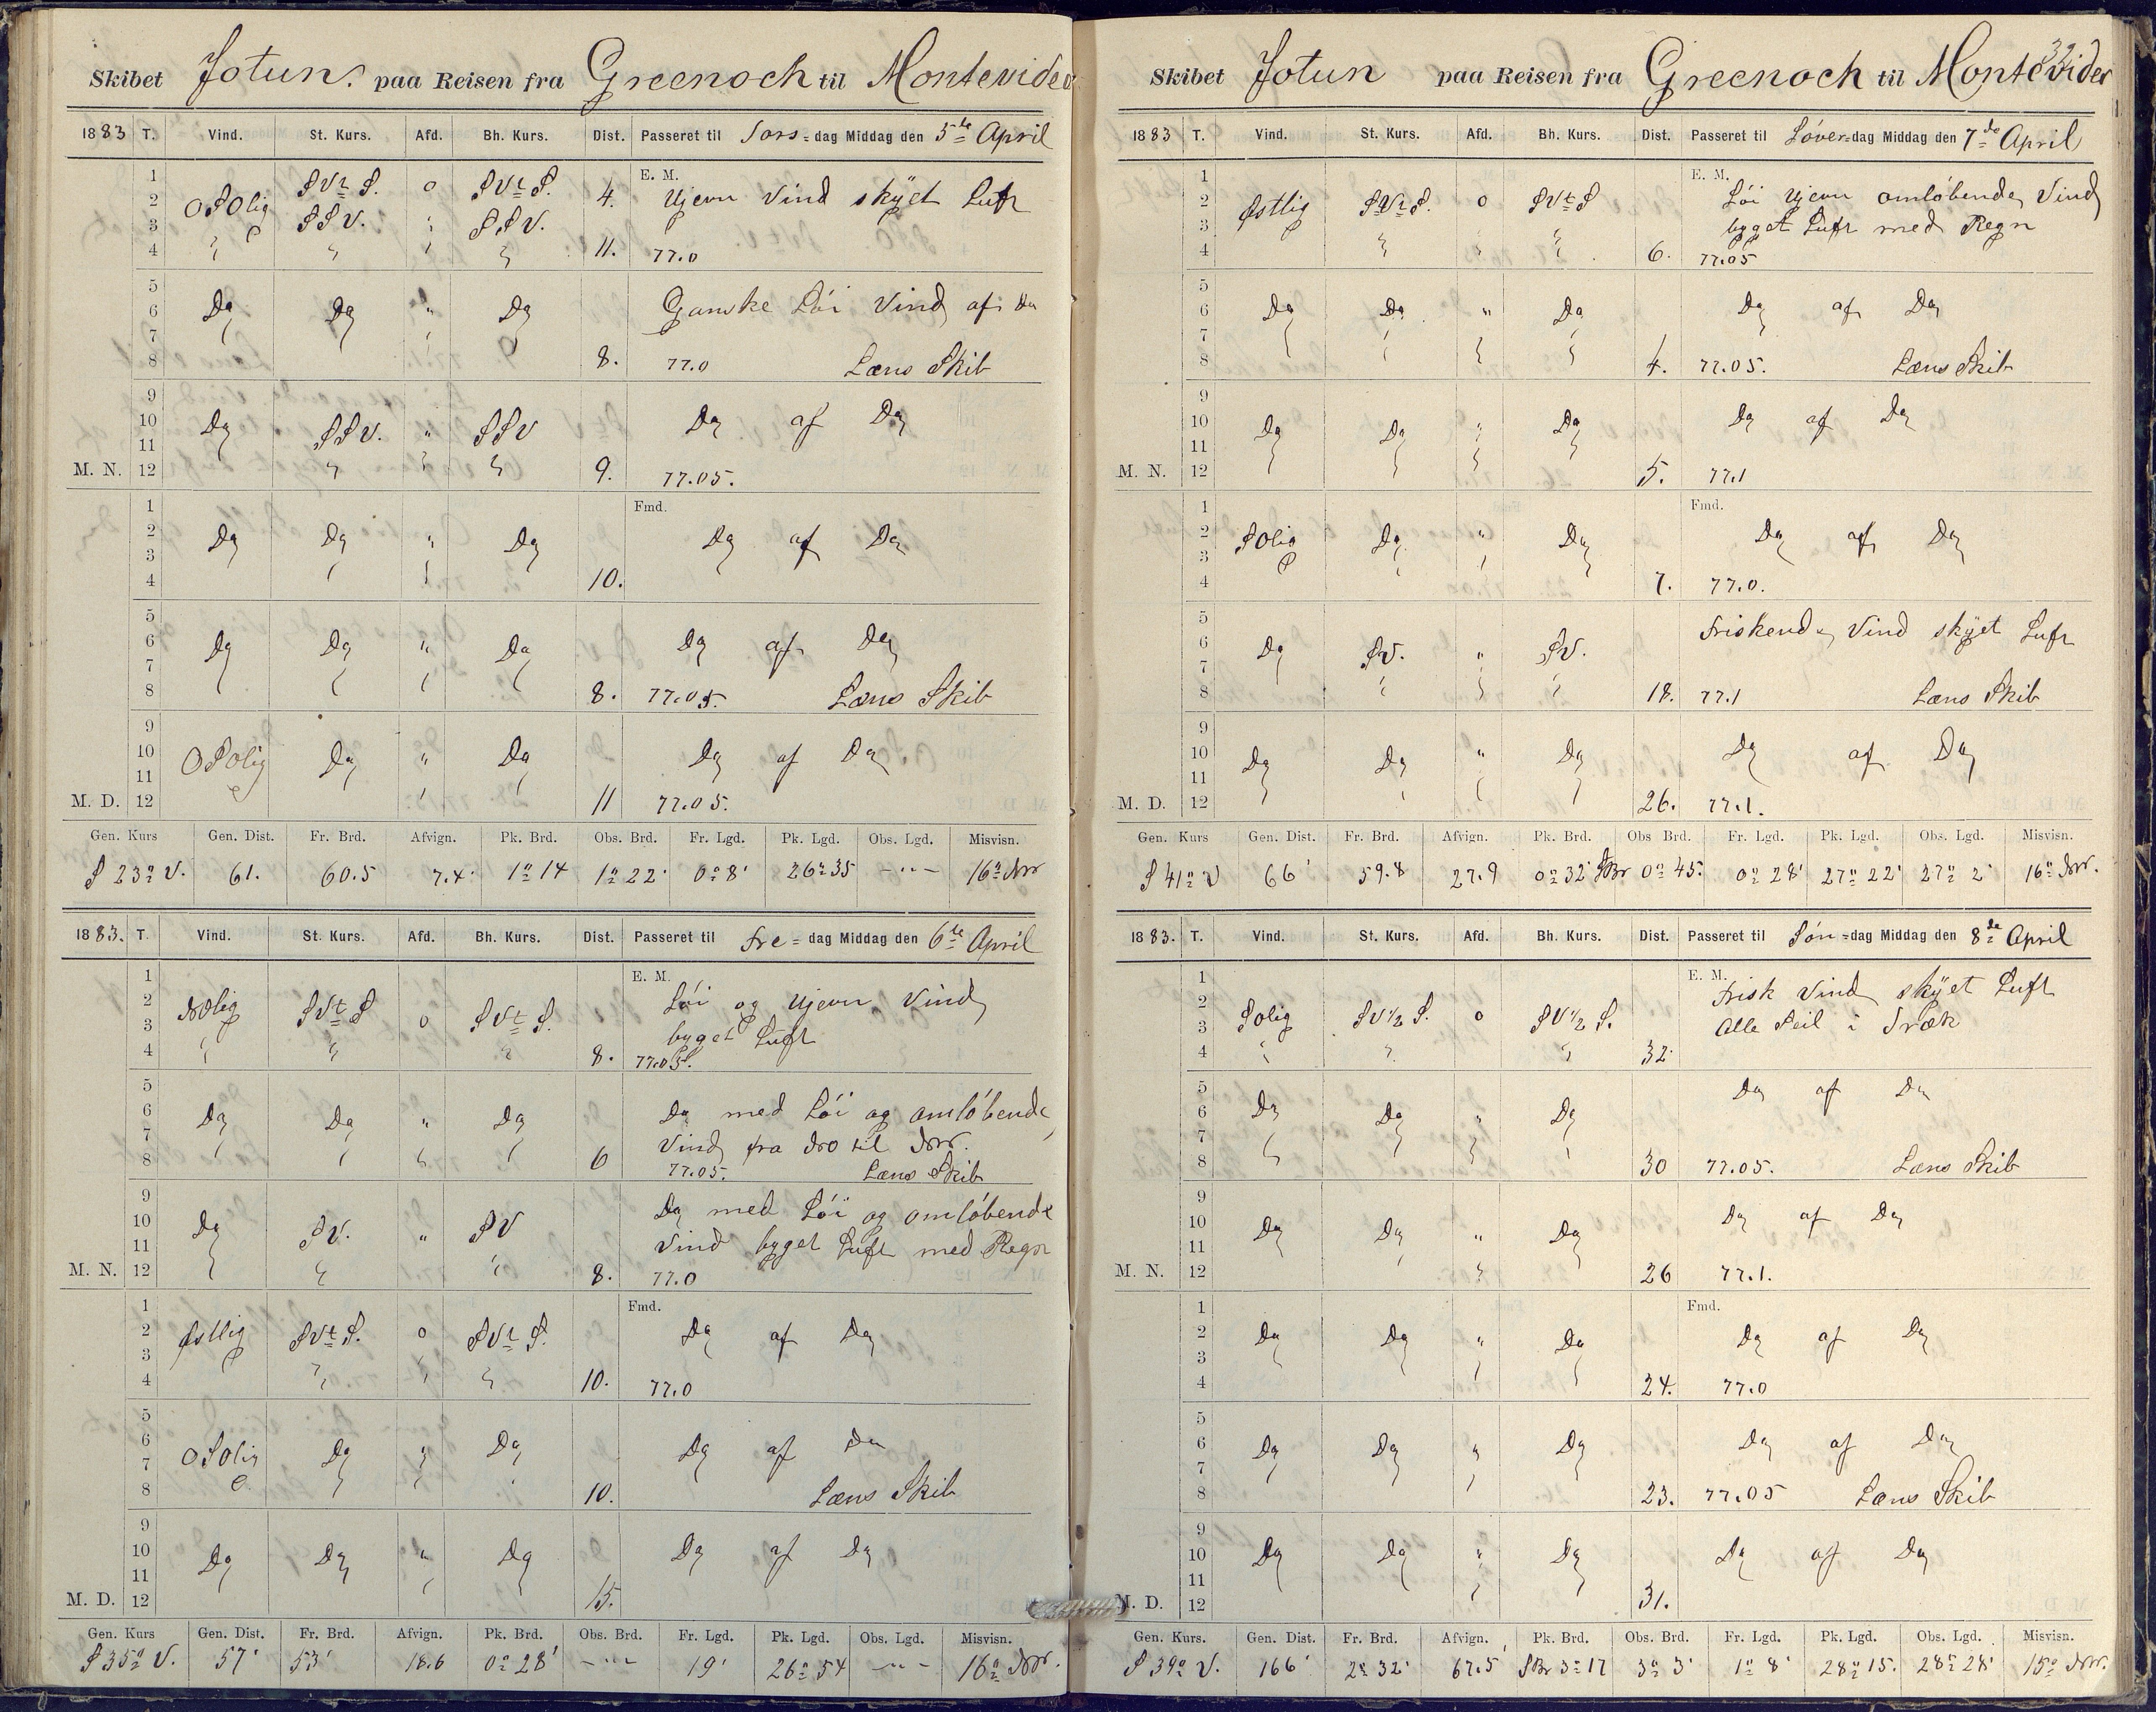 Skibet Jotun. paa Reisen fra Greenoch til Montevideo
1883 T. Vind. St. Kurs. Afd. Bh. Kurs. Dist. Passeret til Tors-dag Middag den 5te April
1 E. M.
2 OSOlig SVtS. o SVtS. 4. Ujevn Vind skÿet Luft
3 SSV. SSV.
4 11. 77.0
5
6 Do Do " Do Ganske Löi Vind af Do
7
8 8. 77.0 Læns Skib
9
10 Do SSV. " SSV Do af Do
11
M. N. 12 9. 77.05.
1 Fmd.
2 Do Do " Do Do af Do
3
4 10.
5
6 Do Do " Do Do af Do
7
8 8. 77.05. Læns Skib
9
10 OSOlig Do " Do Do af Do
11
M. D. 12 11 77.05.
Gen. Kurs Gen. Dist. Fr. Brd. Afvign. Pk. Brd. Obs. Brd. Fr. Lgd. Pk. Lgd. Obs. Lgd. Misvisn.
S 23° V. 61. 60.5 7.4' 1° 14 1° 22' 0° 8' 26° 35 - " - 16° NW
1883. T. Vind. St. Kurs. Afd. Bh. Kurs. Dist. Passeret til Fre-dag Middag den 6te April
1 E. M.
2 NOlig SVtS o SVtS. Löi og Ujevn Vind
3 byget Luft
4 8. 77.05.
5
6 Do Do " Do Do med Löi og omlöbende
7 Vind fra NO til NW.
8 6 77.05. Læns Skib
9 Do med Löi og omlöbende
10 Do SV. " SV
11 Vind byget Luft med Regn
M. N. 12 8. 77.0
1 Fmd.
2 Østlig SVtS. o SVtS. Do af Do
3
4 10. 77.0
5
6 OSOlig Do " Do Do af Do
7
8 10. Læns Skib
9
10 Do Do " Do Do af Do
11
M. D. 12 15.
Gen. Kurs Gen. Dist. Fr. Brd. Afvign. Pk. Brd. Obs. Brd. Fr. Lgd. Pk. Lgd. Obs. Lgd. Misvisn.
S 35° V. 57' 53' 18.6 0° 28' - " - 19' 26° 54 - " - 16° NW.
32
Skibet Jotun paa Reisen fra Greenoch til Montevideo
1883 T. Vind. St. Kurs. Afd. Bh. Kurs. Dist. Passeret til Löver-dag Middag den 7de April
1 E. M.
2 Østlig SVtS. o SVtS Löi Ujevn omlöbende Vind
3 byget Luft med Regn
4 6. 77.05
5
6 Do Do " Do Do af Do
7
8 4. 77.05. Læns Skib
9
10 Do Do " Do Do af Do
11
M. N. 12 5. 77.1
1 Fmd.
2 SOlig Do " Do Do af Do
3
4 7. 77.0.
5
6 Do SV. " SV. Friskende Vind skÿet Luft
7
8 18. 77.1 Læns Skib
9
10 Do Do " Do Do af Do
11
M. D. 12 26. 77.1.
Gen. Kurs Gen. Dist. Fr. Brd. Afvign. Pk. Brd. Obs Brd. Fr. Lgd. Pk. Lgd. Obs. Lgd. Misvisn.
S 41° V 66' 59.8 27.9 0° 32' SBr 0° 45. 0° 28' 27° 22' 27° 2' 16° NW.
1883. T. Vind. St. Kurs. Afd. Bh. Kurs. Dist. Passeret til Sön-dag Middag den 8de April
1 E. M.
2 SOlig SV 1/2 S. o SV 1/2 S. Frisk Vind skÿet Luft
3 Alle Seil i Træk
4 32.
5
6 Do Do " Do Do af Do
7
8 30 77.05. Læns Skib
9
10 Do Do " Do Do af Do
11
M. N. 12 26 77.1.
1 Fmd.
2 Do Do " Do Do af Do
3
4 24. 77.0
5
6 Do Do " Do Do af Do
7
8 23. 77.05 Læns Skib
9
10 Do Do " Do Do af Do
11
M. D. 12 31.
Gen. Kurs. Gen. Dist. Fr. Brd. Afvign. Pk. Brd. Obs. Brd. Fr. Lgd. Pk. Lgd. Obs. Lgd. Misvisn.
S 39° V. 166' 2° 32' 67.5 SBr 3° 17 3° 3' 1° 8' 28° 15. 28° 28' 15° NW.